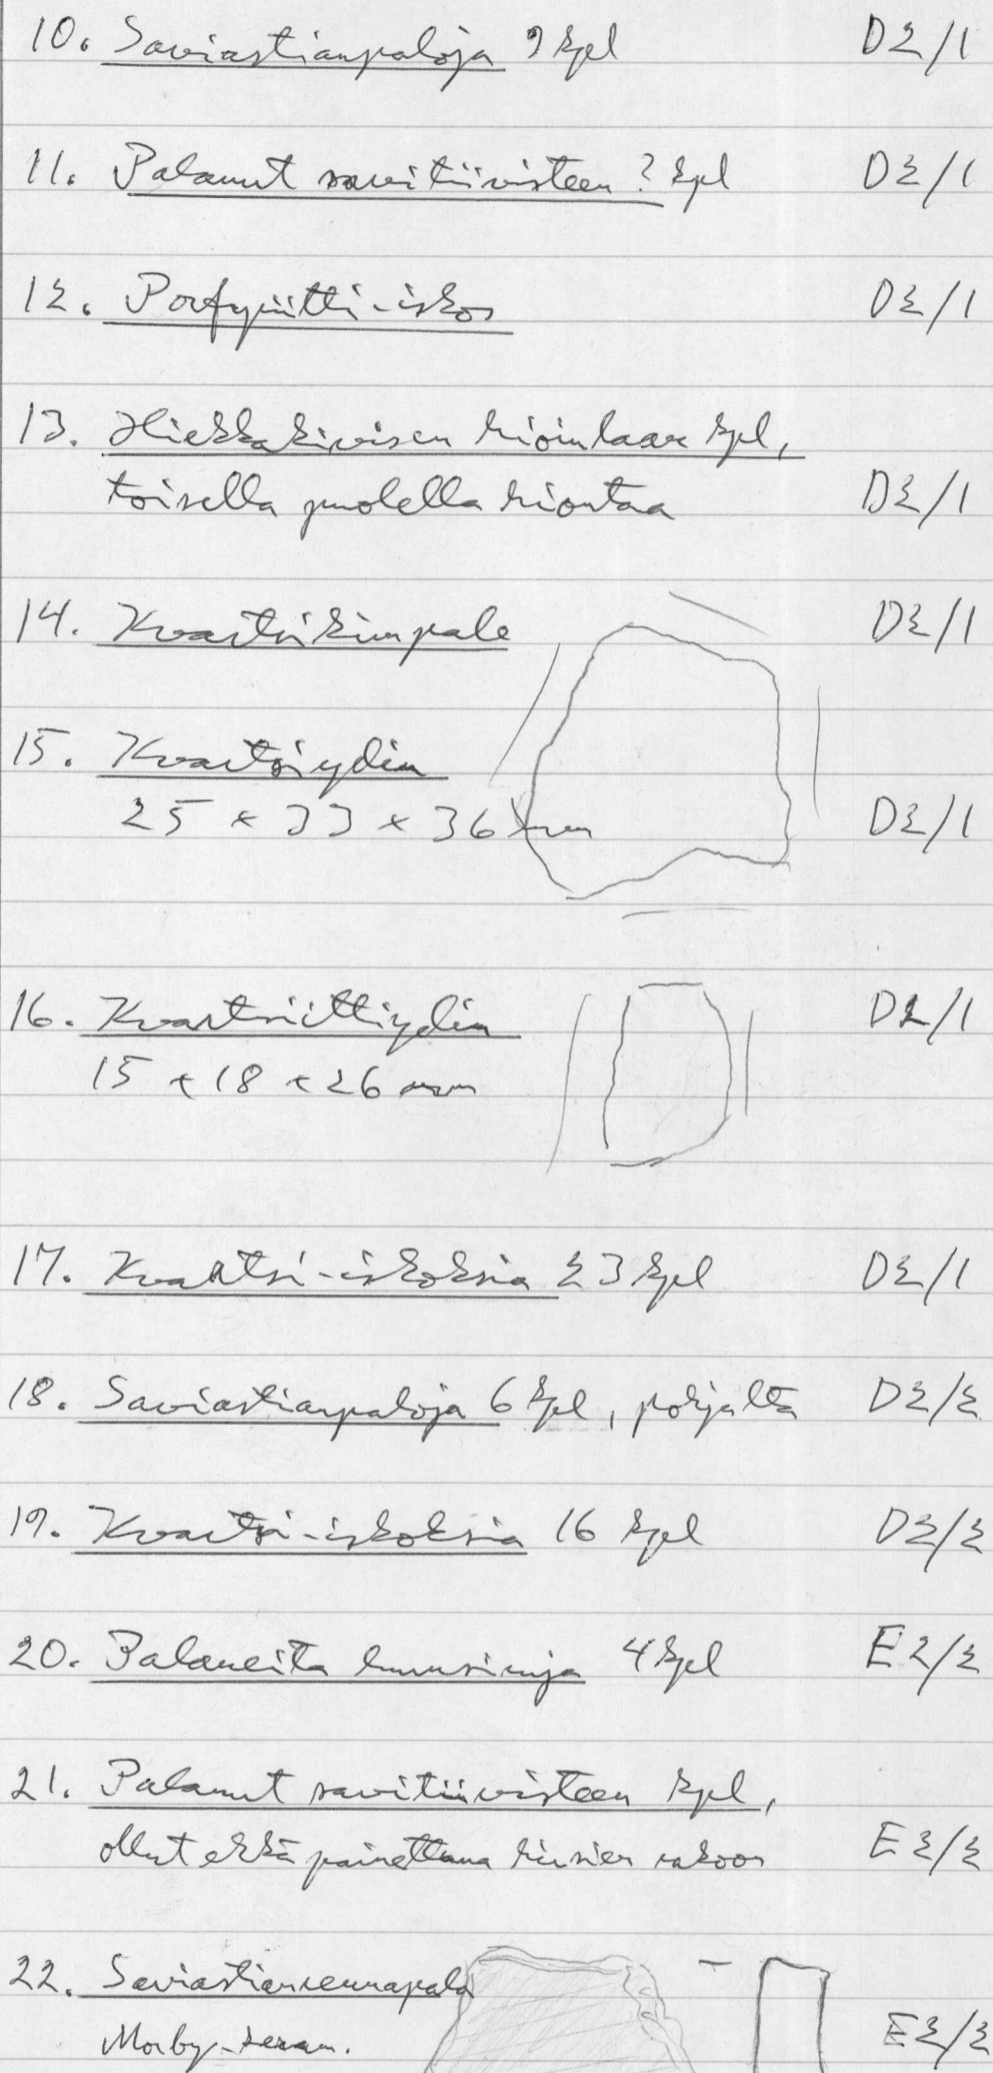 10. Saviastianpaloja 9 kpl D2/1
11. Palanut savitiivisteen ? kpl D2/1
12. Porfyriitti-iskos D2/1
13. Hiekkakivisen hioinlaan kpl,
toisella puolella hiontaa D2/1
14. Kvartsikimpale D2/1
15. Kvartsiydin
25 × 33 × 36 mm D2/1
16. Kvartsiittiydin D2/1
15 × 18 × 26 mm
17. Kvartsi-iskoksia 23 kpl D2/1
18. Saviastianpaloja 6 kpl, pohjalta D2/2
19. Kvartsi-iskoksia 16 kpl D2/2
20. Palaneita luunsiruja 4 kpl E2/2
21. Palanut savitiivisteen kpl,
ollut ehkä painettuna hirsien rakoon E2/2
22. Saviastianreunapala
Morby-keram. E2/2